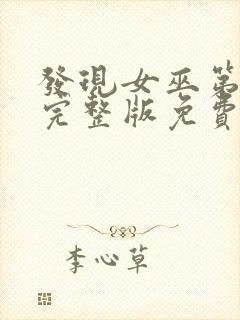 發現女巫第
完整版免費
李心草